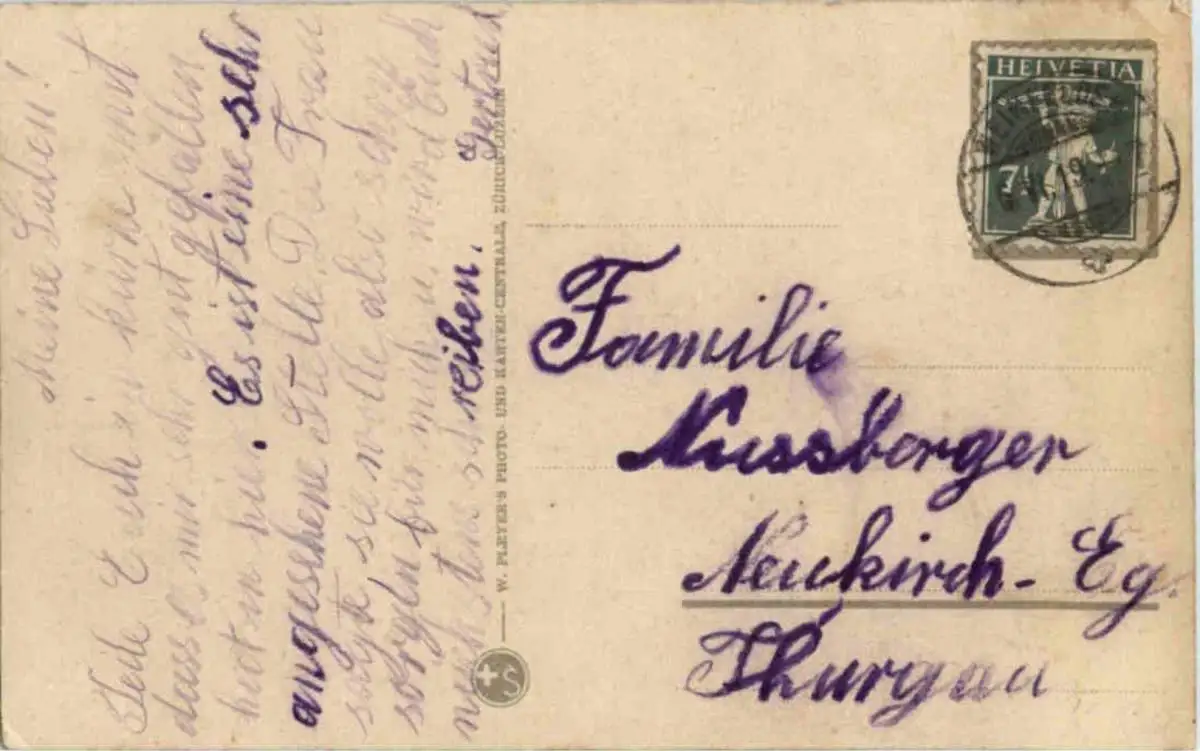 Meine Lieben!
Teile Euch in kürze mit
dass es mir sehr gut gefallen
hat hier. Es ist eine sehr
angesehene Stelle. Die Frau
sagte, sie wolle also schon
sorgen für mich u. werd Euch
nächstens schreiben. Gertrud
W. PLEYER'S PHOTO- UND KARTEN-CENTRALE, ZÜRICH
S
HELVETIA
7½
Familie
Nussberger
Neukirch-Eg.
Thurgau